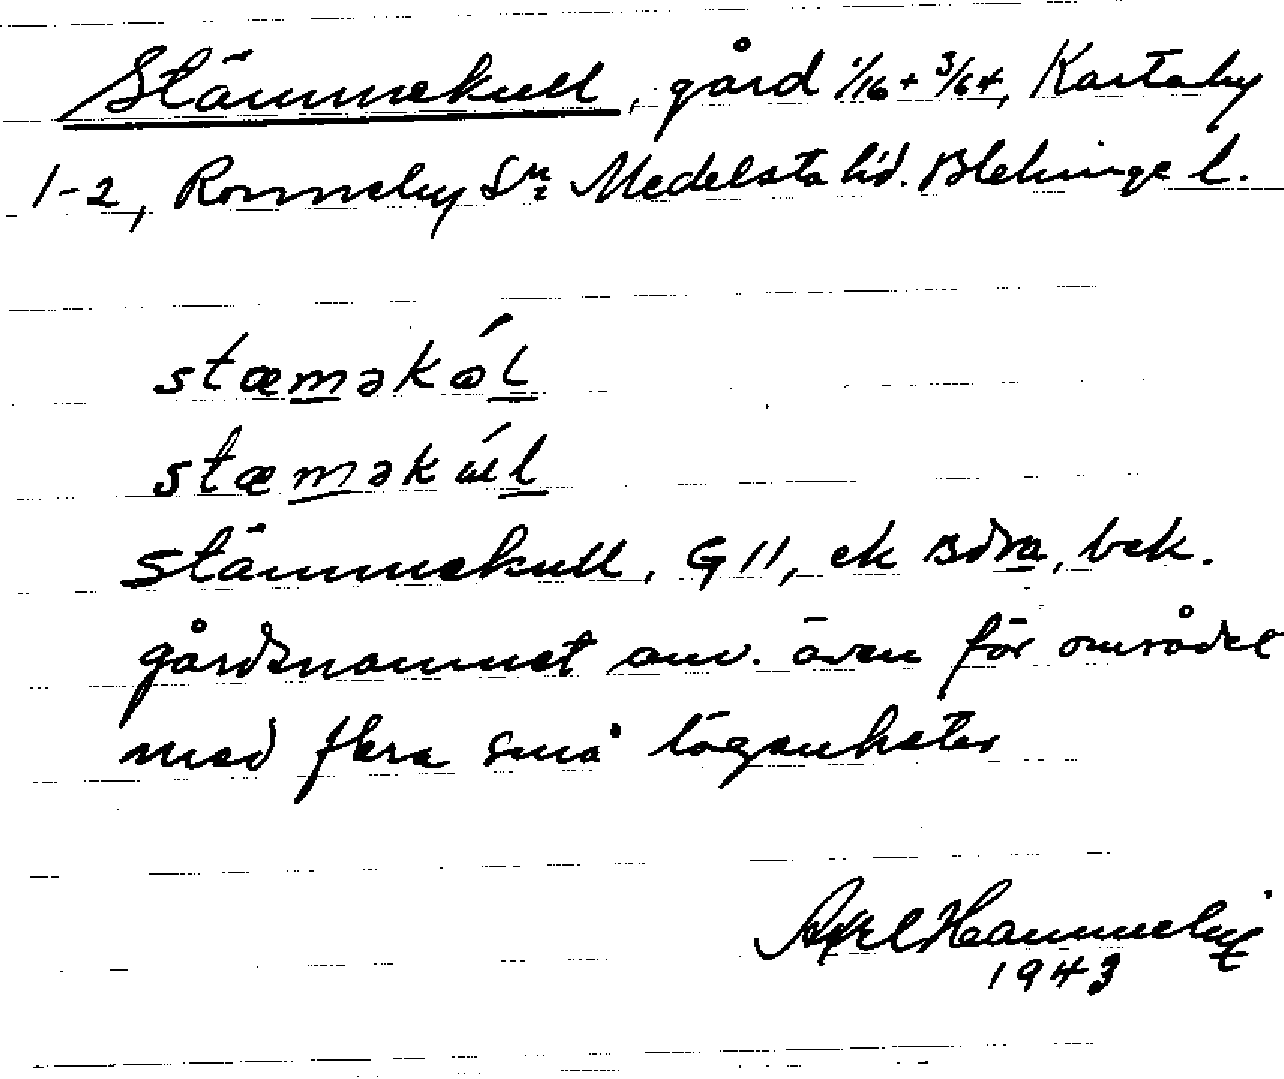 Stämmekull, gård 1/16 + 3/64, Kartaby
1-2, Ronneby Sn, Medelsta hd. Blekinge l.
stæməkól
stæməkúl
Stämmekull, G 11, ek Bdra, bek.
gårdsnamnet anv. även för området
med flera små lägenheter
Axel Hammeby
1943